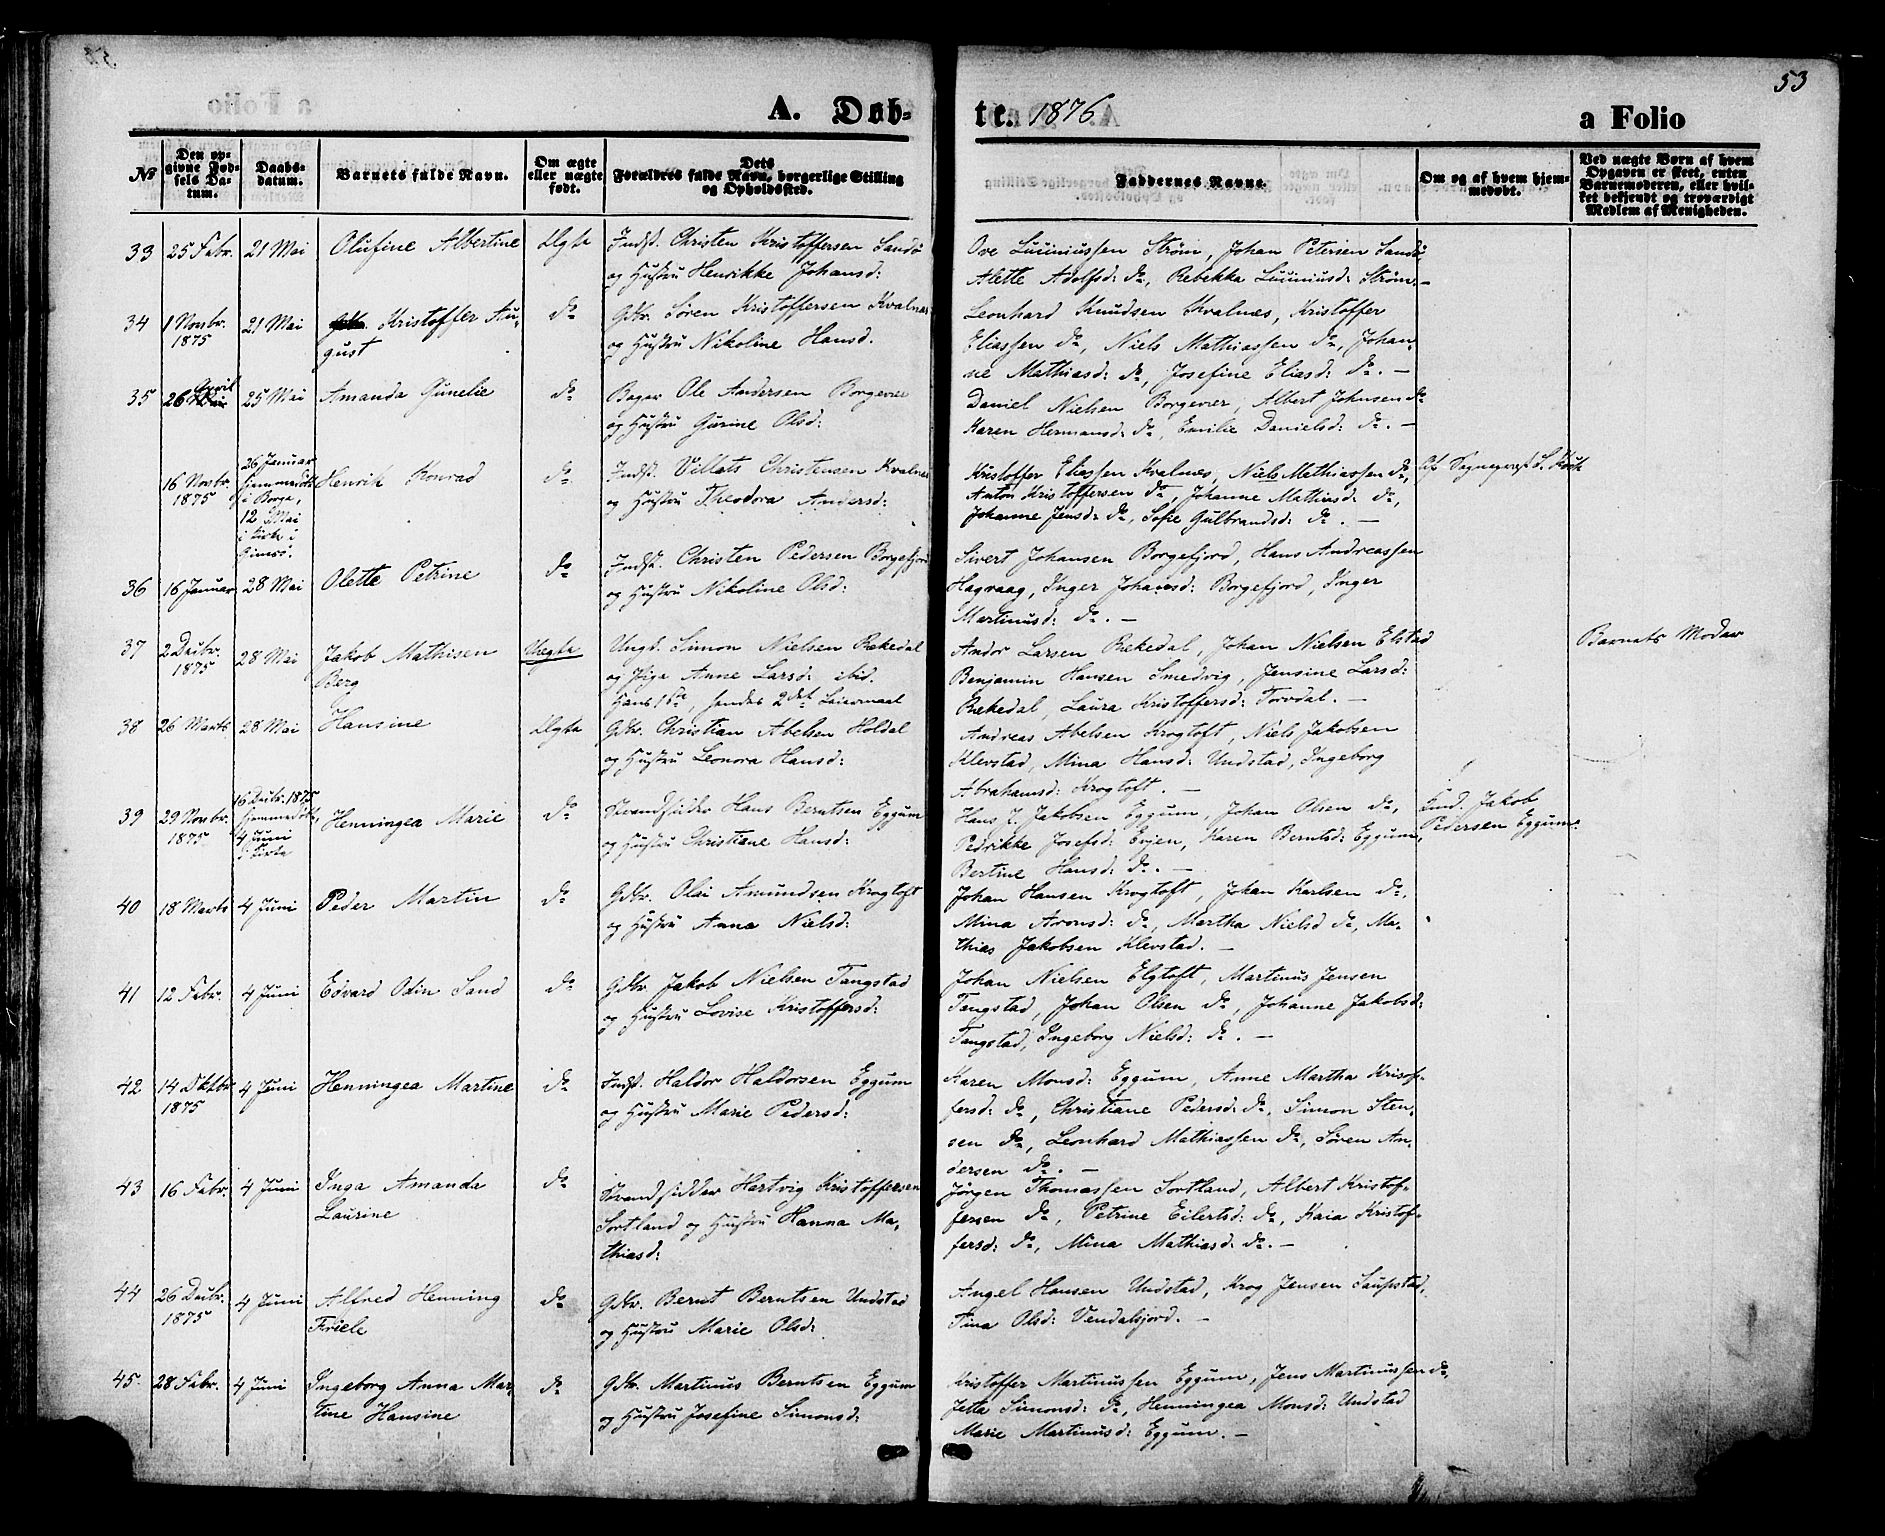 53
A. Døb-
te. 1876
a Folio
No
Den op-
givne Fød-
sels Da-
tum.
Daabs-
datum.
Barnets fulde Navn.
Om ægte
eller uægte
født.
Dets
Forældres fulde Navn, borgerlige Stilling
og Opholdssted.
Faddernes Navne.
Om og af hvem hjem-
medøbt.
Ved uægte Børn af hvem
Opgaven er skeet, enten
Barnemoderen, eller hvil-
ket bekjendt og troværdigt
Medlem af Menigheden.
33 25 Febr. 21 Mai Olufine Albertine Ægte Indst. Christen Kristoffersen Sandø
og Hustru Henrikke Johansd:
Ove Lucinussen Strøm, Johan Petersen Sandø
Alette Adolfsd: do, Rebekka Luciniusd: Strøm. –
34 1 Novbr.
1875
21 Mai Kristoffer Au-
gust
do Gdbr. Søren Kristoffersen Kvalnæs
og Hustru Nikoline Hansd.
Leonhard Knudsen Kvalnæs, Kristoffer
Eliassen do, Niels Mathiassen do, Johan-
ne Mathiasd: do, Josefine Eliasd: do. –
35 26 April 25 Mai Amanda Gunelie do Bager Ole Andersen Borgevær
og Hustru Gurine Olsd:
Daniel Nielsen Borgevær, Albert Johnsen do
Karen Hermansd: do, Emilie Danielsd: do. –
16 Novbr.
1875
26 Januar
hjemmedøbt
i Borge,
12 Mai
i Kirke i
Gimsø.
Henrik Konrad do Indst. Villats Christensen Kvalnæs
og Hustru Theodora Andersd:
Kristoffer Eliassen Kvalnæs, Niels Mathiassen do,
Anton Kristoffersen do, Johanne Mathiasd: do,
Johanne Jensd: do, Sofie Gulbrandsd: do. –
Af Sognepræst S. Koch
36 16 Januar 28 Mai Olette Petrine do Indst. Christen Pedersen Borgefjord
og Hustru Nikoline Olsd:
Sivert Johansen Borgefjord, Hans Andreassen
Hagvaag, Inger Johansd: Borgefjord, Inger
Martinusd: do. –
37 2 Decbr.
1875
28 Mai Jakob Mathisen
Berg
Uægte Ungk. Simon Nielsen Rekedal
og Pige Anne Larsd: ibid.
Hans 1ste, hendes 2det Leiermaal
Andor Larsen Rekedal, Johan Nielsen Elstad
Benjamin Hansen Smedvig, Jensine Larsd:
Rekedal, Laura Kristoffersd: Torvdal. –
Barnets Moder
38 26 Marts 28 Mai Hansine Ægte Gdbr. Christian Abelsen Holdal
og Hustru Leonora Hansd:
Andreas Abelsen Krogtoft, Niels Jakobsen
Klevstad, Mina Hansd: Undstad, Ingeborg
Abrahamsd: Krogtoft. –
39 29 Novbr.
1875
16 Decbr. 1875
hjemmedøbt,
4 Juni
i Kirke
Henningea Marie do Strandsidder Hans Berntsen Eggum
og Hustru Christiane Hansd:
Hans J. Jakobsen Eggum, Johan Olsen do,
Pedrikke Josefsd: Evjen, Karen Berntsd: Eggum,
Bertine Hansd: do. –
Jakob
Pedersen Eggum.
40 18 Marts 4 Juni Peder Martin do Gdbr. Olai Amundsen Krogtoft
og Hustru Anna Nielsd:
Johan Hansen Krogtoft, Johan Karlsen do,
Mina Aronsd: do, Martha Nielsd do, Ma-
thias Jakobsen Klevstad. –
41 12 Febr. 4 Juni Edvard Odin Sand do Gdbr Jakob Nielsen Tangstad
og Hustru Lovise Kristoffersd:
Johan Nielsen Elgtoft, Martinus Jensen
Tangstad, Johan Olsen do, Johanne Jakobsd:
Tangstad, Ingeborg Nielsd: do. –
42 14 Oktbr
1875
4 Juni Henningea Martine do Indst. Haldor Haldorsen Eggum
og Hustru Marie Pedersd:
Karen Monsd: Eggum, Anne Martha Kristof-
fersd: do, Christiane Pedersd: do, Simon Sten-
sen do, Leonhard Mathiassen do, Søren An-
dersen do. –
43 16 Febr. 4 Juni Inga Amanda
Laurine
do Strandsidder Hartvig Kristoffersen
Sortland og Hustru Hanna Ma-
thiasd:
Jørgen Thomassen Sortland, Albert Kristof-
fersen do, Petrine Eilertsd: do, Kaia Kristof-
fersd: do, Mina Mathiasd: do. –
44 26 Decbr.
1875
4 Juni Alfred Henning
Friele
do Gdbr. Bernt Berntsen Undstad
og Hustru Marie Olsd:
Angel Hansen Undstad, Krog Jensen Saupstad,
Tina Olsd: Vendalsjord. –
45. 28 Febr. 4 Juni Ingeborg Anna Mar-
tine Hansine
do Gdbr. Martinus Berntsen Eggum
og Hustru Josefine Simonsd:
Kristoffer Martinussen Eggum, Jens Martinussen do,
Jetta Simonsd: do, Henningea Monsd: Undstad
Marie Martinusd: Eggum. –